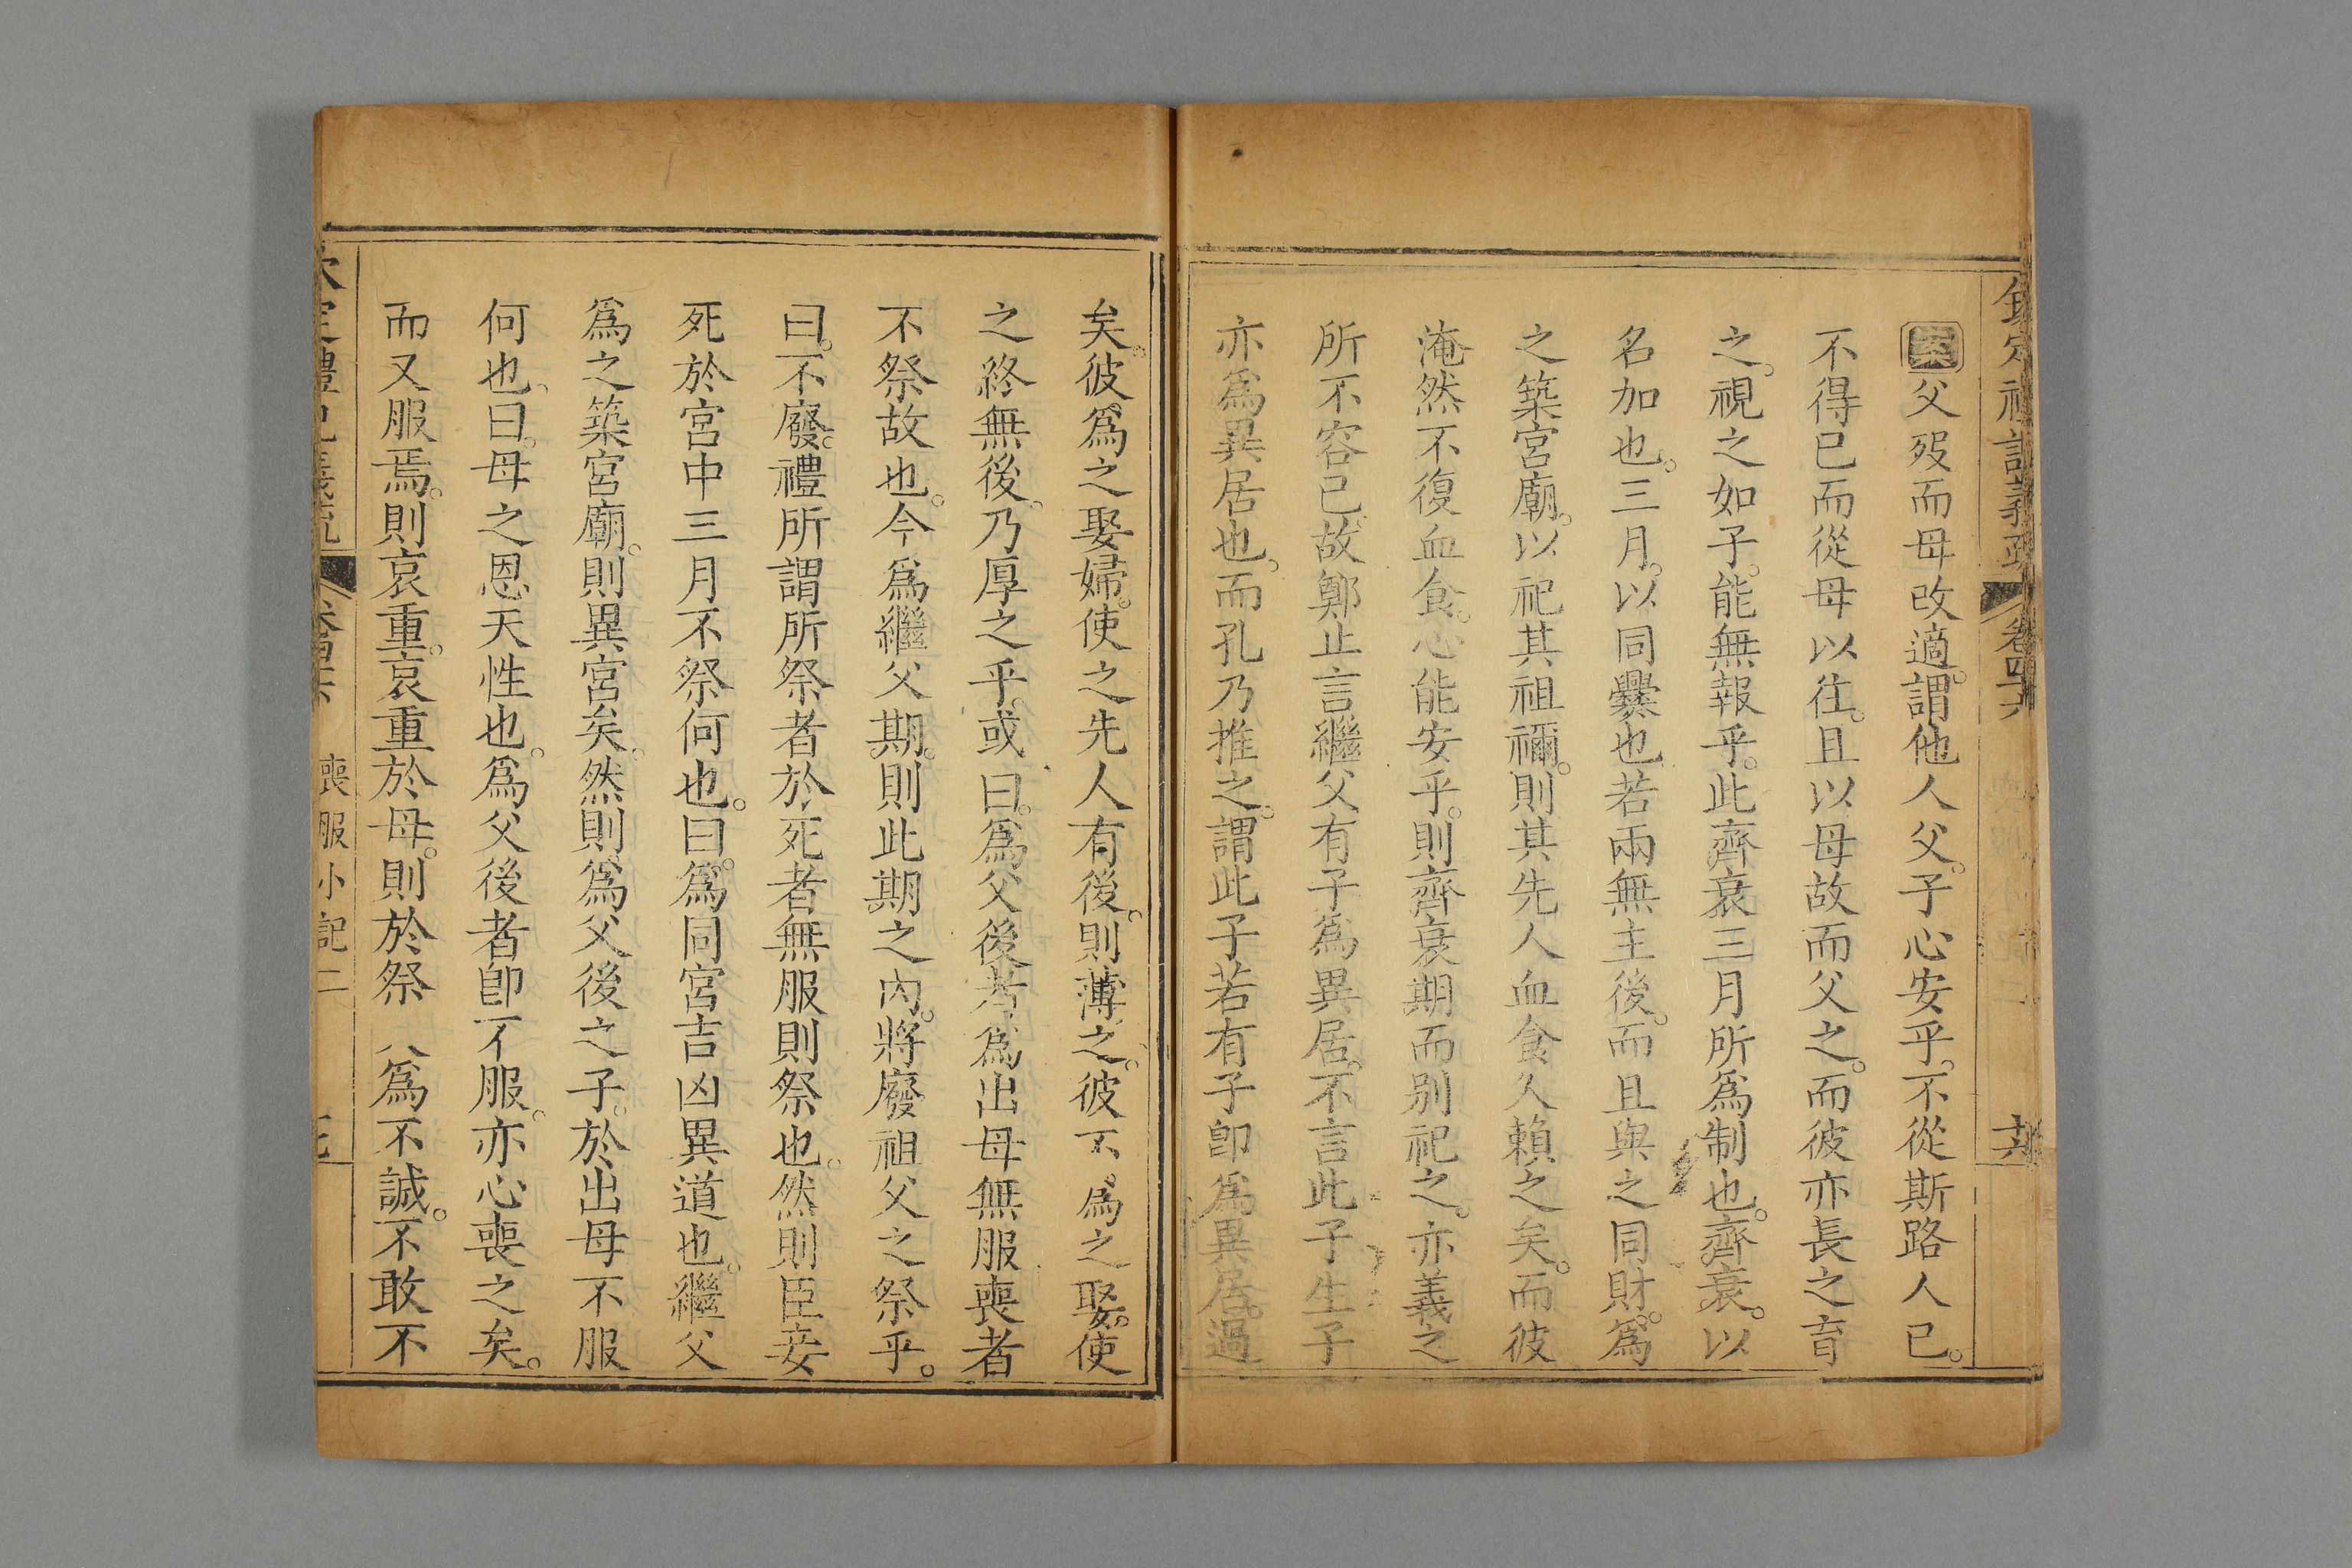 欽定禮記義疏 卷四十六 十六
案父歿而母改適。謂他人父。子心安乎。不從斯路人已。
不得已而從母以往。且以母故而父之。而彼亦長之育
之。視之如子。能無報乎。此齊衰三月所爲制也。齊衰。以
名加也。三月。以同爨也。若兩無主後。而且與之同財。爲
之築宮廟。以祀其祖禰。則其先人血食久賴之矣。而彼
淹然不復血食。心能安乎。則齊衰期而别祀之。亦義之
所不容已。故鄭止言繼父有子爲異居。不言此子生子
亦爲異居也。而孔乃推之。謂此子若有子卽爲異居。過
矣。彼爲之娶婦。使之先人有後。則薄之。彼不爲之娶。使
之終無後。乃厚之乎。或曰。爲父後者爲出母無服喪者
不祭故也。今爲繼父期。則此期之內。將廢祖父之祭乎。
曰。不廢。禮所謂所祭者於死者無服則祭也。然則臣妾
死於宮中三月不祭何也。曰。爲同宮吉凶異道也。繼父
爲之築宮廟。則異宮矣。然則爲父後之子。於出母不服
何也。曰。母之恩天性也。爲父後者卽不服。亦心喪之矣。
而又服焉。則哀重。哀重於母。則於祭 爲不誠。不敢不
欽定禮記義疏 卷四十六 喪服小記二